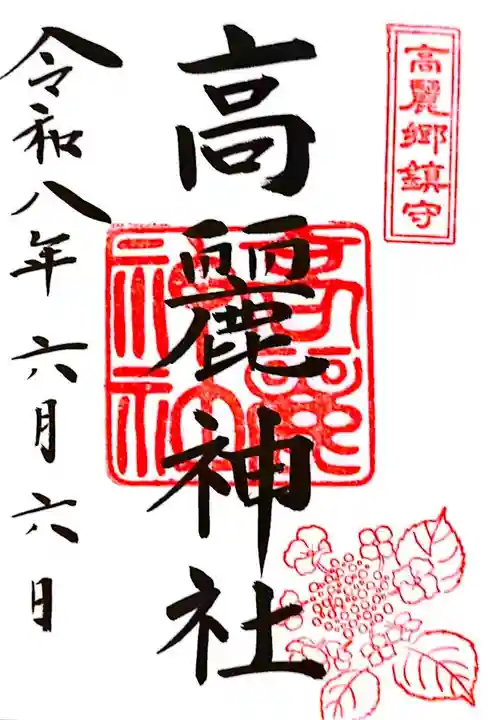 高麗郷鎮守
高麗神社
高麗神社
令和八年六月六日